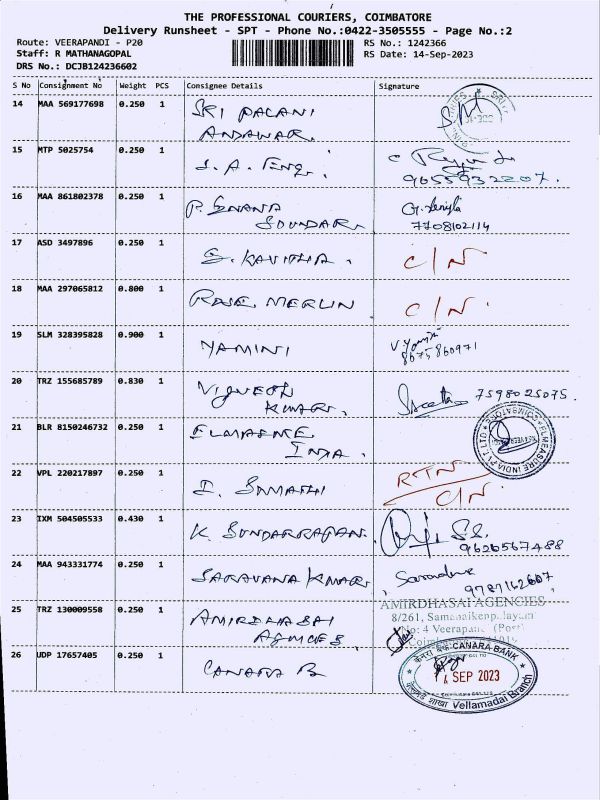 THE PROFESSIONAL COURIERS, COIMBATORE
Delivery Runsheet - SPT - Phone No.:0422-3505555 - Page No.:2
Route: VEERAPANDI - P20 RS No.: 1242366
Staff: R MATHANAGOPAL RS Date: 14-Sep-2023
DRS No.: DCJB124236602
S No Consignment No Weight PCS Consignee Details Signature
14 MAA 569177698 0.250 1 SRI PALANI
ANDAWAR
15 MTP 5025754 0.250 1 J. A. Engg.
9655932207.
16 MAA 861802378 0.250 1 P. GNANA
SOUNDARI
7708102114
17 ASD 3497896 0.250 1 S. KAVITHA. C/N
18 MAA 297065812 0.800 1 ROSE MERLIN C/N
19 SLM 328395828 0.900 1 YAMINI V. Yamini
8675860971
20 TRZ 155685789 0.830 1 VIGNESH
KUMAR. 7598025075.
21 BLR 8150246732 0.250 1 ELMEASURE
INDIA. ELMEASURE INDIA PVT LTD COIMBATORE
22 VPL 220217897 0.250 1 I. SUMATHI RTN
C/N
23 IXM 504505533 0.430 1 K. SUNDARRAJAN. 9626567488
24 MAA 943331774 0.250 1 SARAVANA KUMAR,
9787162607,
25 TRZ 130009558 0.250 1 AMIRDHA SAI
AGENCIES AMIRDHASAI AGENCIES
8/261, Samanaikenpalayam
No: 4 Veerapandi (Post)
26 UDP 17657405 0.250 1 CANARA B
CANARA BANK
14 SEP 2023
Vellamadai Branch